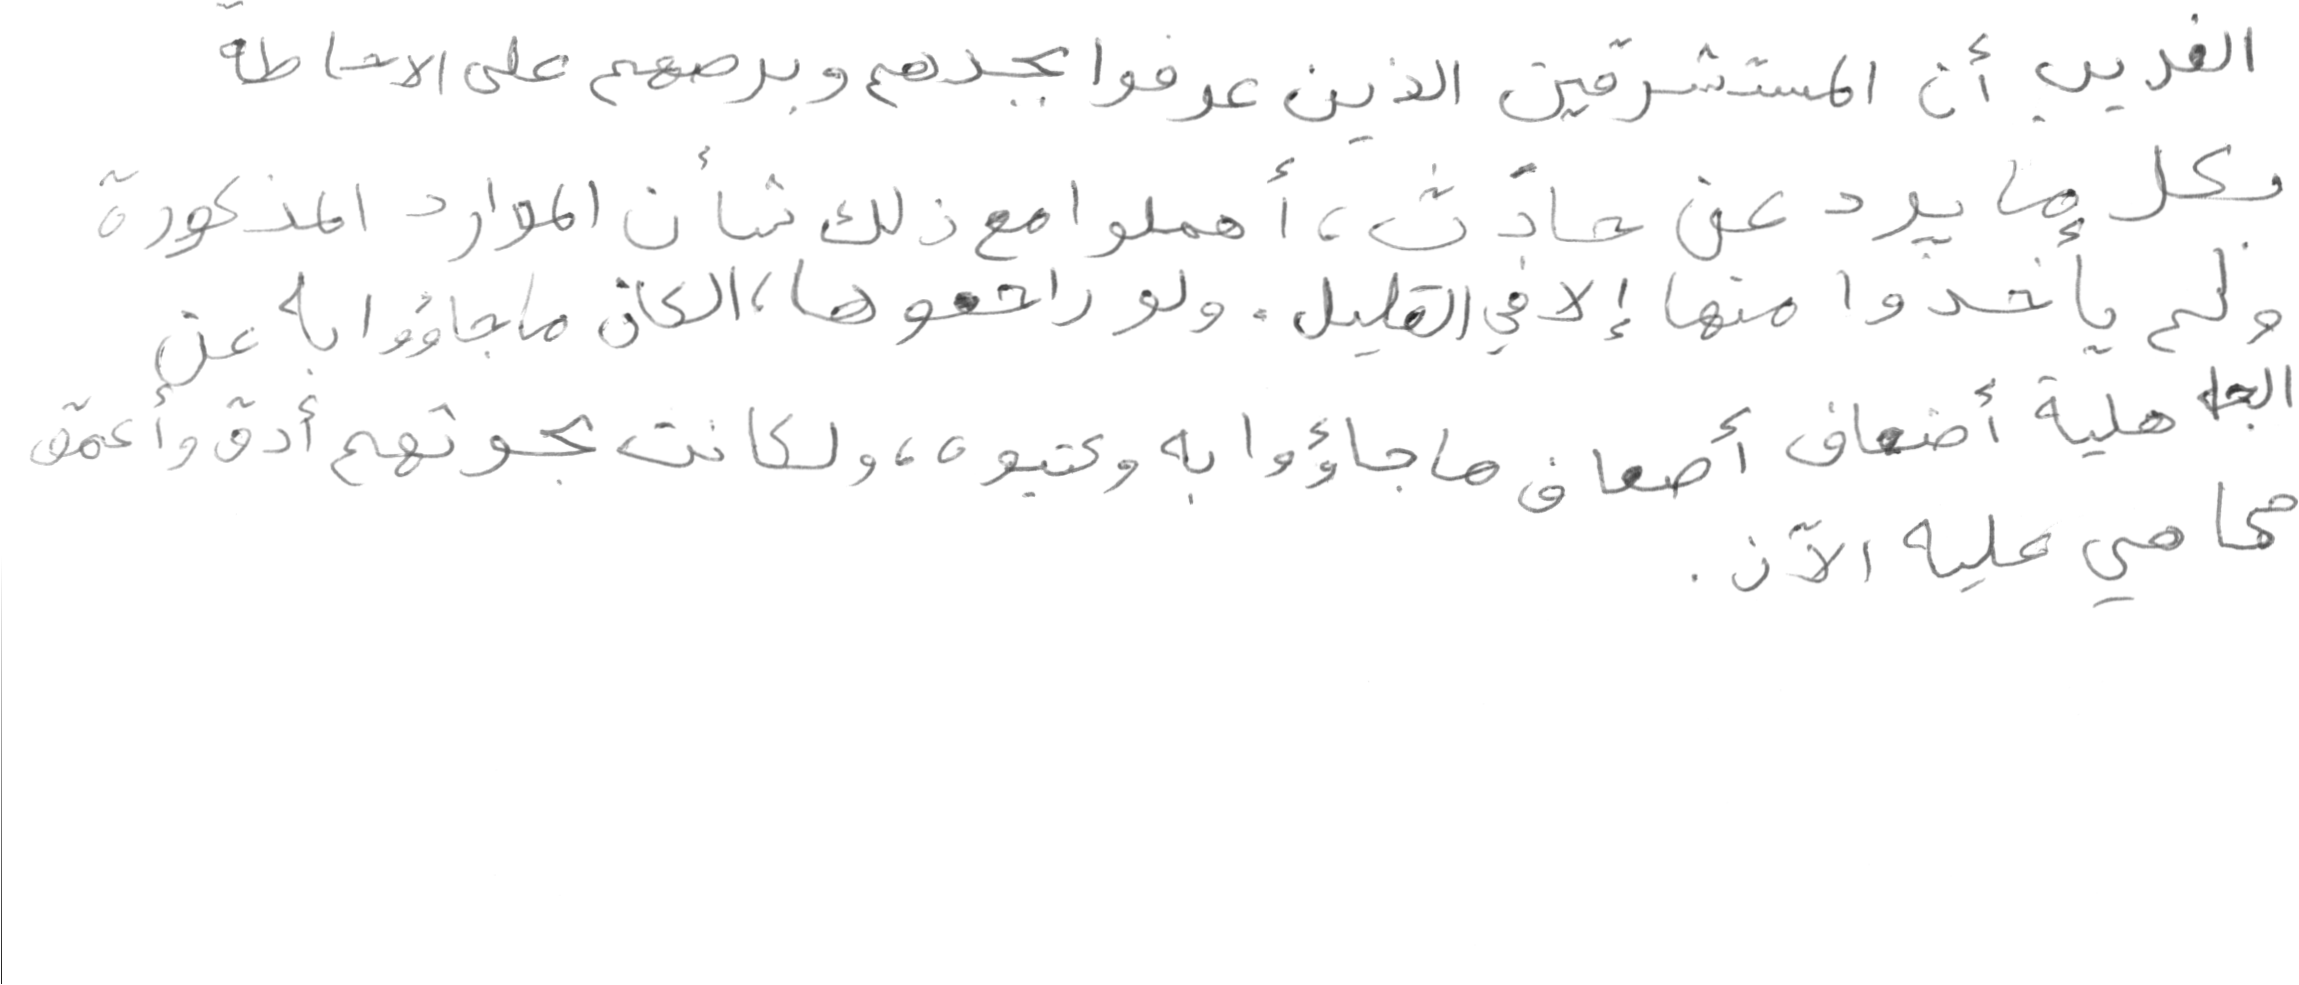 الغريب أن المستشرقين الذين عرفوا بجدهم وبرصهم على الاحاطة
بكل ما يرد عن حادث، أهملوا مع ذلك شأن الموارد المذكورة
ولم يأخذوا منها إلا في القليل. ولو راجعوها، لكان ما جاؤوا به عن
الجاهلية أضعاف أضعاف ما جاؤوا به وكتبوه، ولكانت بحوثهم أدق وأعمق
مما هي عليه الآن.